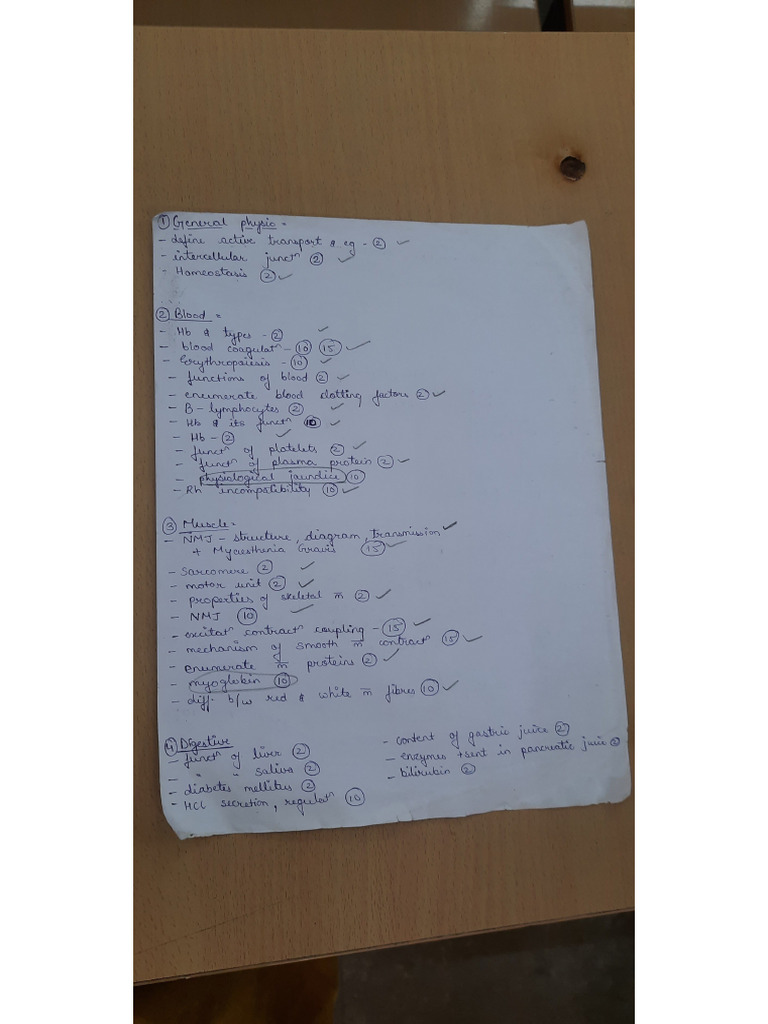 ① General physio -
- define active transport & eg - ② ✓
- intercellular junctⁿ ② ✓
- Homeostasis ② ✓
② Blood =
- Hb & types - ② ✓
- blood coagulatⁿ - ⑩ ⑮ ✓
- Erythropoiesis - ⑩ ✓
- functions of blood ② ✓
- enumerate blood clotting factors ② ✓
- B-lymphocytes ② ✓
- Hb & its functⁿ ⑩ ✓
- Hb - ② ✓
- functⁿ of platelets ② ✓
- functⁿ of plasma protein ② ✓
- physiological jaundice ⑩
- Rh incompatibility ⑩ ✓
③ Muscle =
- NMJ - structure, diagram, transmission ✓
+ Myaesthenia Gravis ⑮ ✓
- Sarcomere ② ✓
- motor unit ② ✓
- properties of skeletal m̅ ② ✓
- NMJ ⑩ ✓
- excitatⁿ contractⁿ coupling - ⑮ ✓
- mechanism of smooth m̅ contractⁿ ⑮ ✓
- enumerate m̅ proteins ② ✓
- myoglobin ⑩
- diff. b/w red & white m̅ fibres ⑩ ✓
④ Digestive
- functⁿ of liver ②
- " " saliva ②
- diabetes mellitus ②
- HCl secretion, regulatⁿ ⑩
- content of gastric juice ②
- enzymes +sent in pancreatic juice ②
- bilirubin ②